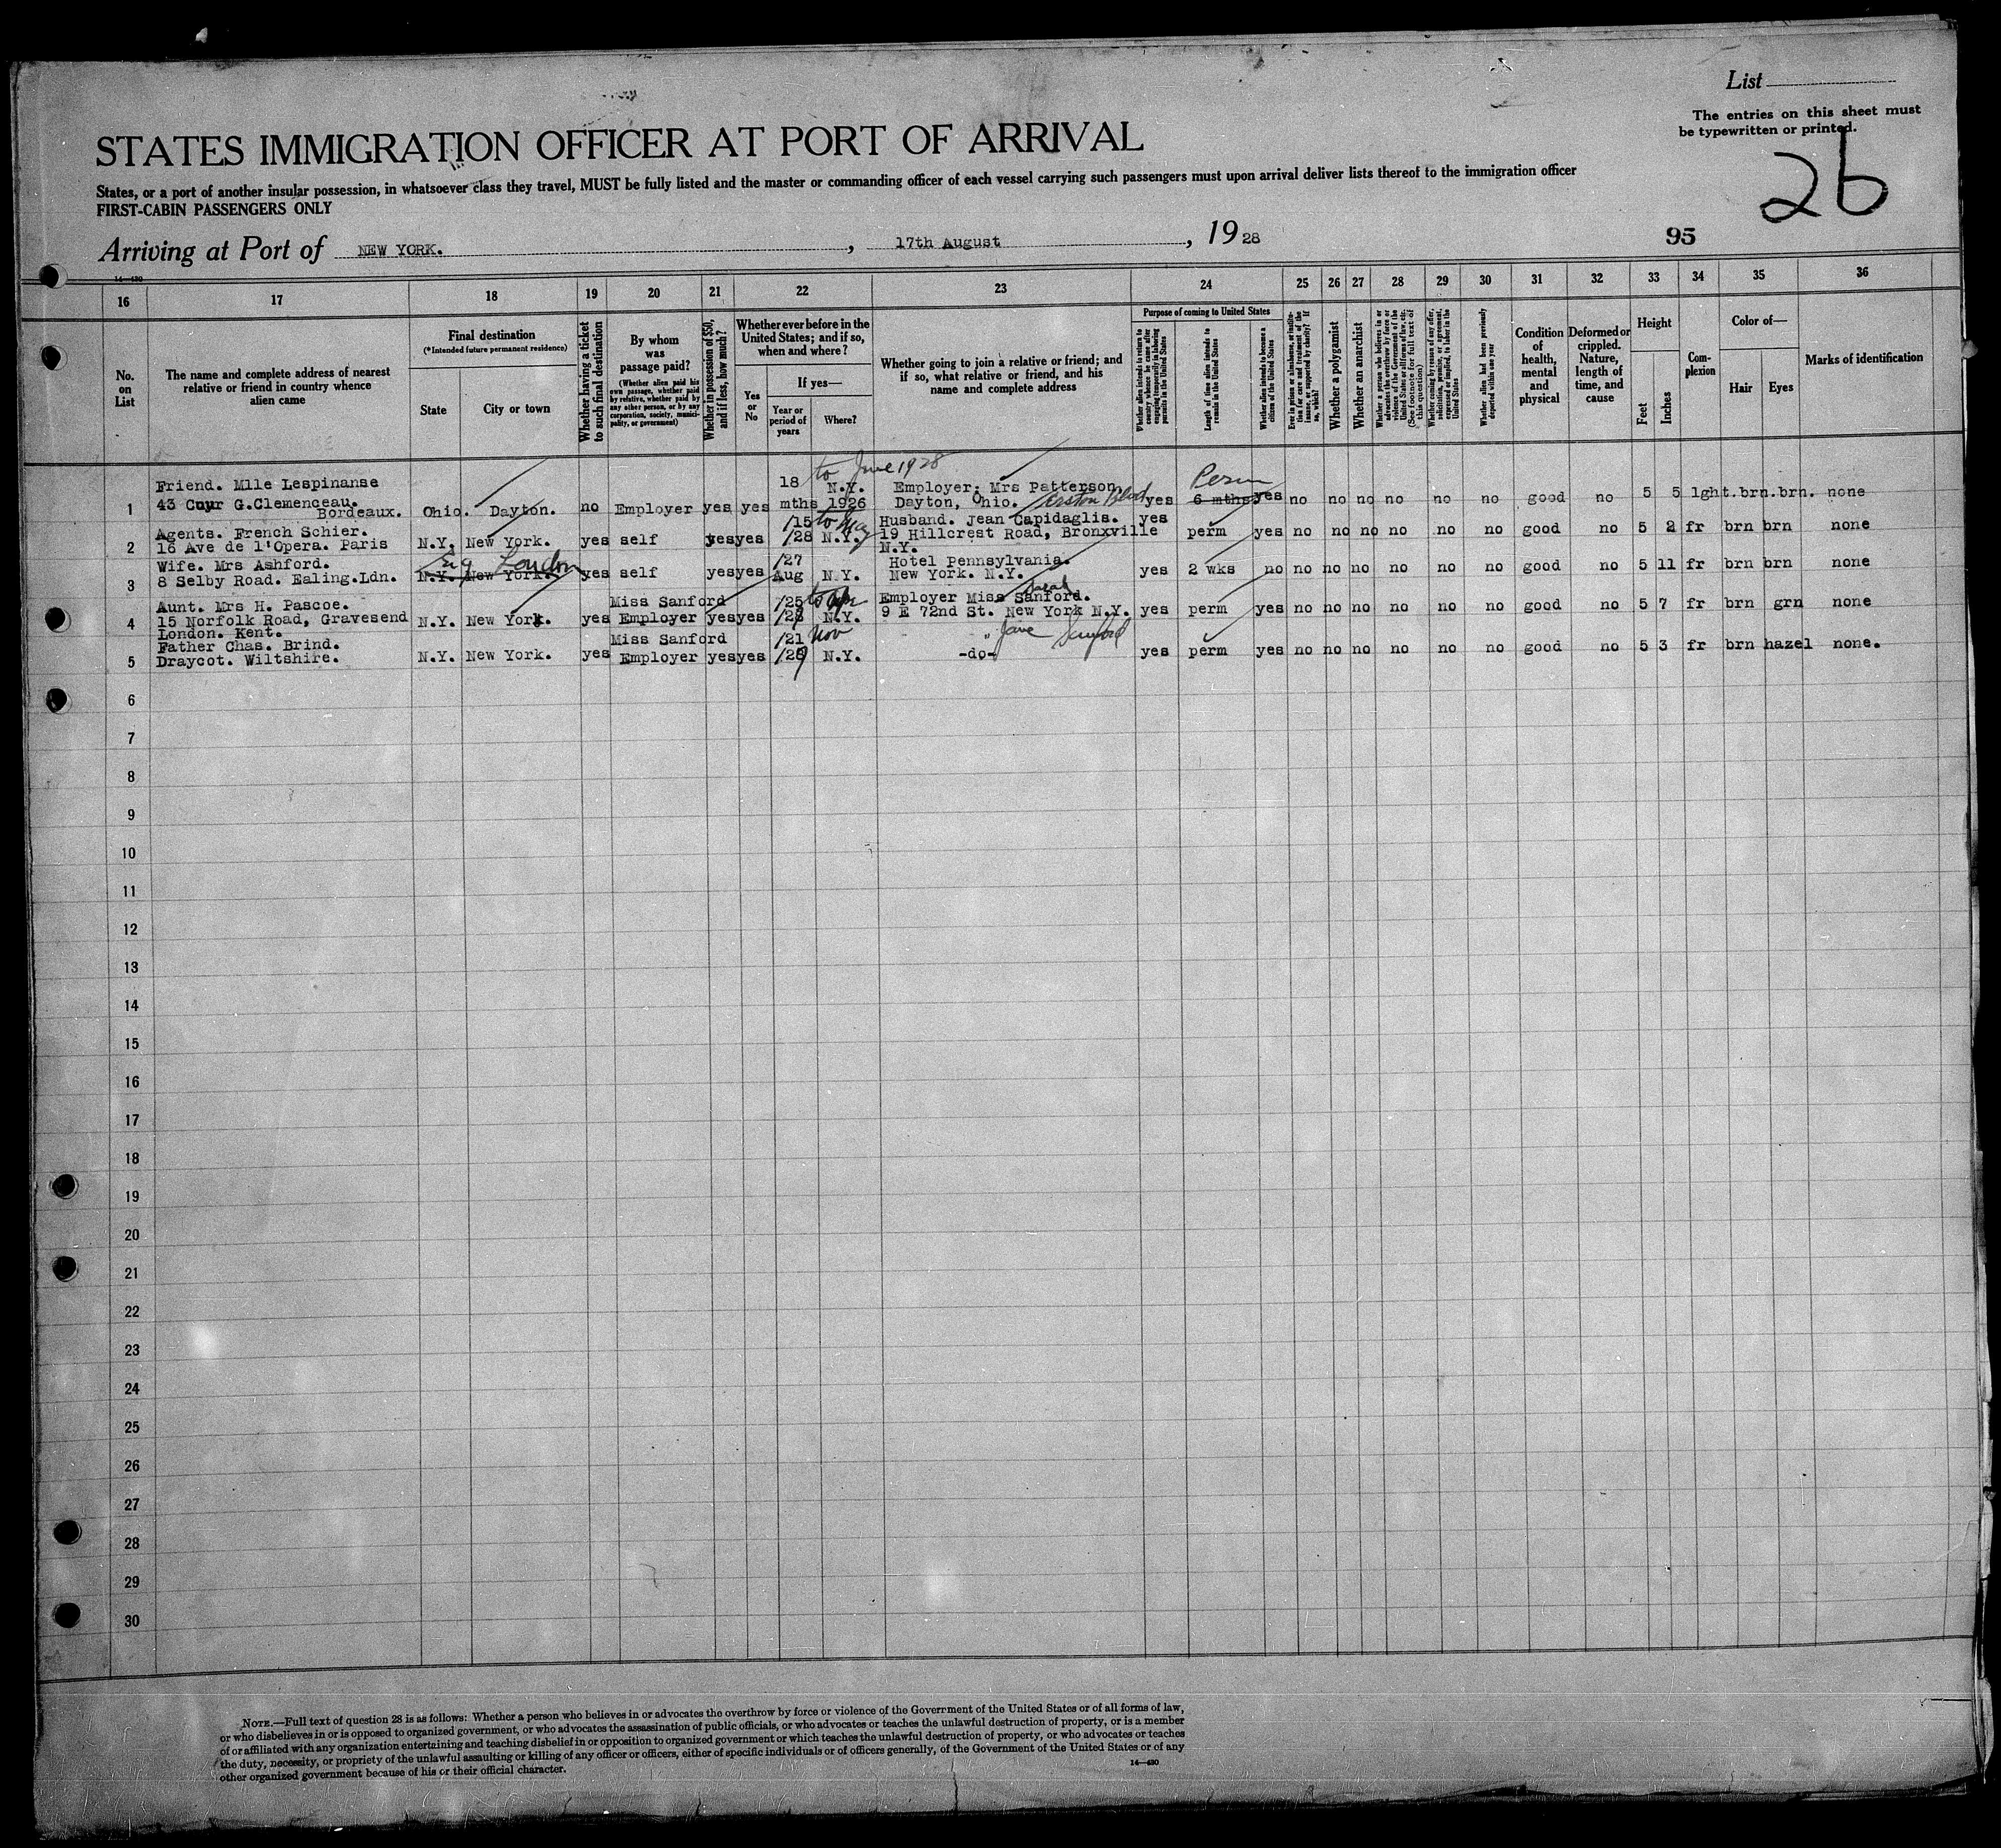 List
The entries on this sheet must
be typewritten or printed.
26
STATES IMMIGRATION OFFICER AT PORT OF ARRIVAL
States, or a port of another insular possession, in whatsoever class they travel, MUST be fully listed and the master or commanding officer of each vessel carrying such passengers must upon arrival deliver lists thereof to the immigration officer
FIRST-CABIN PASSENGERS ONLY
Arriving at Port of NEW YORK. , 17th August , 19 28
95
14—430
16 17 18 19 20 21 22 23 24 25 26 27 28 29 30 31 32 33 34 35 36
No.
on
List
The name and complete address of nearest
relative or friend in country whence
alien came
Final destination
(*Intended future permanent residence)
State
City or town
Whether having a ticket
to such final destination
By whom
was
passage paid?
(Whether alien paid his
own passage, whether paid
by relative, whether paid by
any other person, or by any
corporation, society, munici-
pality, or government)
Whether in possession of $50,
and if less, how much?
Whether ever before in the
United States; and if so,
when and where?
Yes
or
No
If yes—
Year or
period of
years
Where?
Whether going to join a relative or friend; and
if so, what relative or friend, and his
name and complete address
Purpose of coming to United States
Whether alien intends to return to
country whence he came after
engaging temporarily in laboring
pursuits in the United States
Length of time alien intends to
remain in the United States
Whether alien intends to become a
citizen of the United States
Ever in prison or almshouse, or institu-
tion for care and treatment of the
insane, or supported by charity? If
so, which?
Whether a polygamist
Whether an anarchist
Whether a person who believes in or
advocates the overthrow by force or
violence of the Government of the
United States or all forms of law, etc.
(See footnote for full text of
this question)
Whether coming by reason of any offer,
solicitation, promise, or agreement,
expressed or implied, to labor in the
United States
Whether alien had been previously
deported within one year
Condition
of
health,
mental
and
physical
Deformed or
crippled.
Nature,
length of
time, and
cause
Height
Feet
Inches
Com-
plexion
Color of—
Hair
Eyes
Marks of identification
to June 1928
Perm
Friend. Mlle Lespinanse 18 N.Y. Employer: Mrs Patterson
1 43 Cour G.Clemenceau. Ohio. Dayton. no Employer yes yes mths 1926 Dayton, Ohio. Blvd yes 6 mths yes no no no no no no good no 5 5 lght.brn.brn. none
Bordeaux.
Agents. French Schier. /15 to May Husband. Jean Capidaglis. yes
2 16 Ave de l'Opera. Paris N.Y. New York. yes self yes yes /28 N.Y. 19 Hillcrest Road, Bronxville perm yes no no no no no no good no 5 2 fr brn brn none
N.Y.
Eng London
Wife. Mrs Ashford. /27 Hotel Pennsylvania.
3 8 Selby Road. Ealing.Ldn. N.Y. New York. yes self yes yes Aug N.Y. New York. N.Y. yes 2 wks no no no no no no no good no 5 11 fr brn brn none
Sarah
Aunt. Mrs H. Pascoe. Miss Sanford /25 to Apr Employer Miss Sanford.
4 15 Norfolk Road, Gravesend N.Y. New York. yes Employer yes yes /28 N.Y. 9 E 72nd St. New York N.Y. yes perm yes no no no no no no good no 5 7 fr brn grn none
London. Kent.
Father Chas. Brind. Miss Sanford /21 Nov " Jane Sanford
5 Draycot. Wiltshire. N.Y. New York. yes Employer yes yes /28 N.Y. -do- yes perm yes no no no no no no good no 5 3 fr brn hazel none.
6
7
8
9
10
11
12
13
14
15
16
17
18
19
20
21
22
23
24
25
26
27
28
29
30
NOTE.—Full text of question 28 is as follows: Whether a person who believes in or advocates the overthrow by force or violence of the Government of the United States or of all forms of law,
or who disbelieves in or is opposed to organized government, or who advocates the assassination of public officials, or who advocates or teaches the unlawful destruction of property, or is a member
of or affiliated with any organization entertaining and teaching disbelief in or opposition to organized government or which teaches the unlawful destruction of property, or who advocates or teaches
the duty, necessity, or propriety of the unlawful assaulting or killing of any officer or officers, either of specific individuals or of officers generally, of the Government of the United States or of any
other organized government because of his or their official character.
14—430